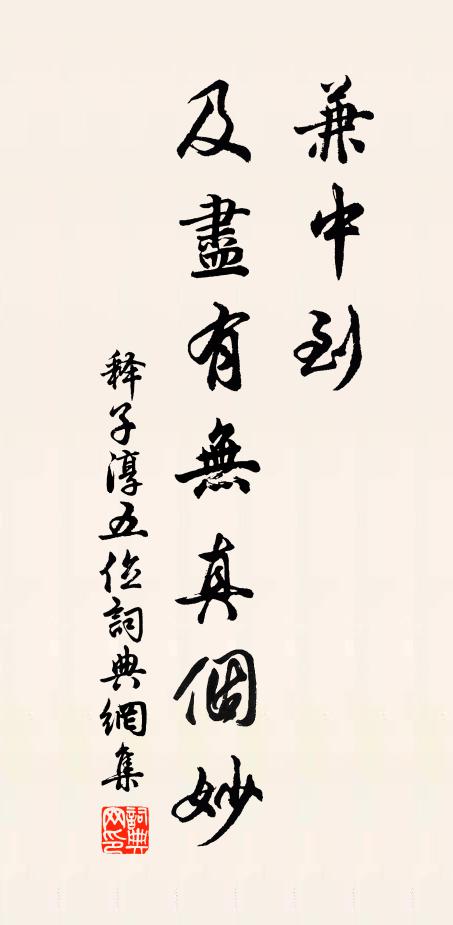 兼中到
及盡有無真個妙
释子淳五位詞典網集
詞典
网印